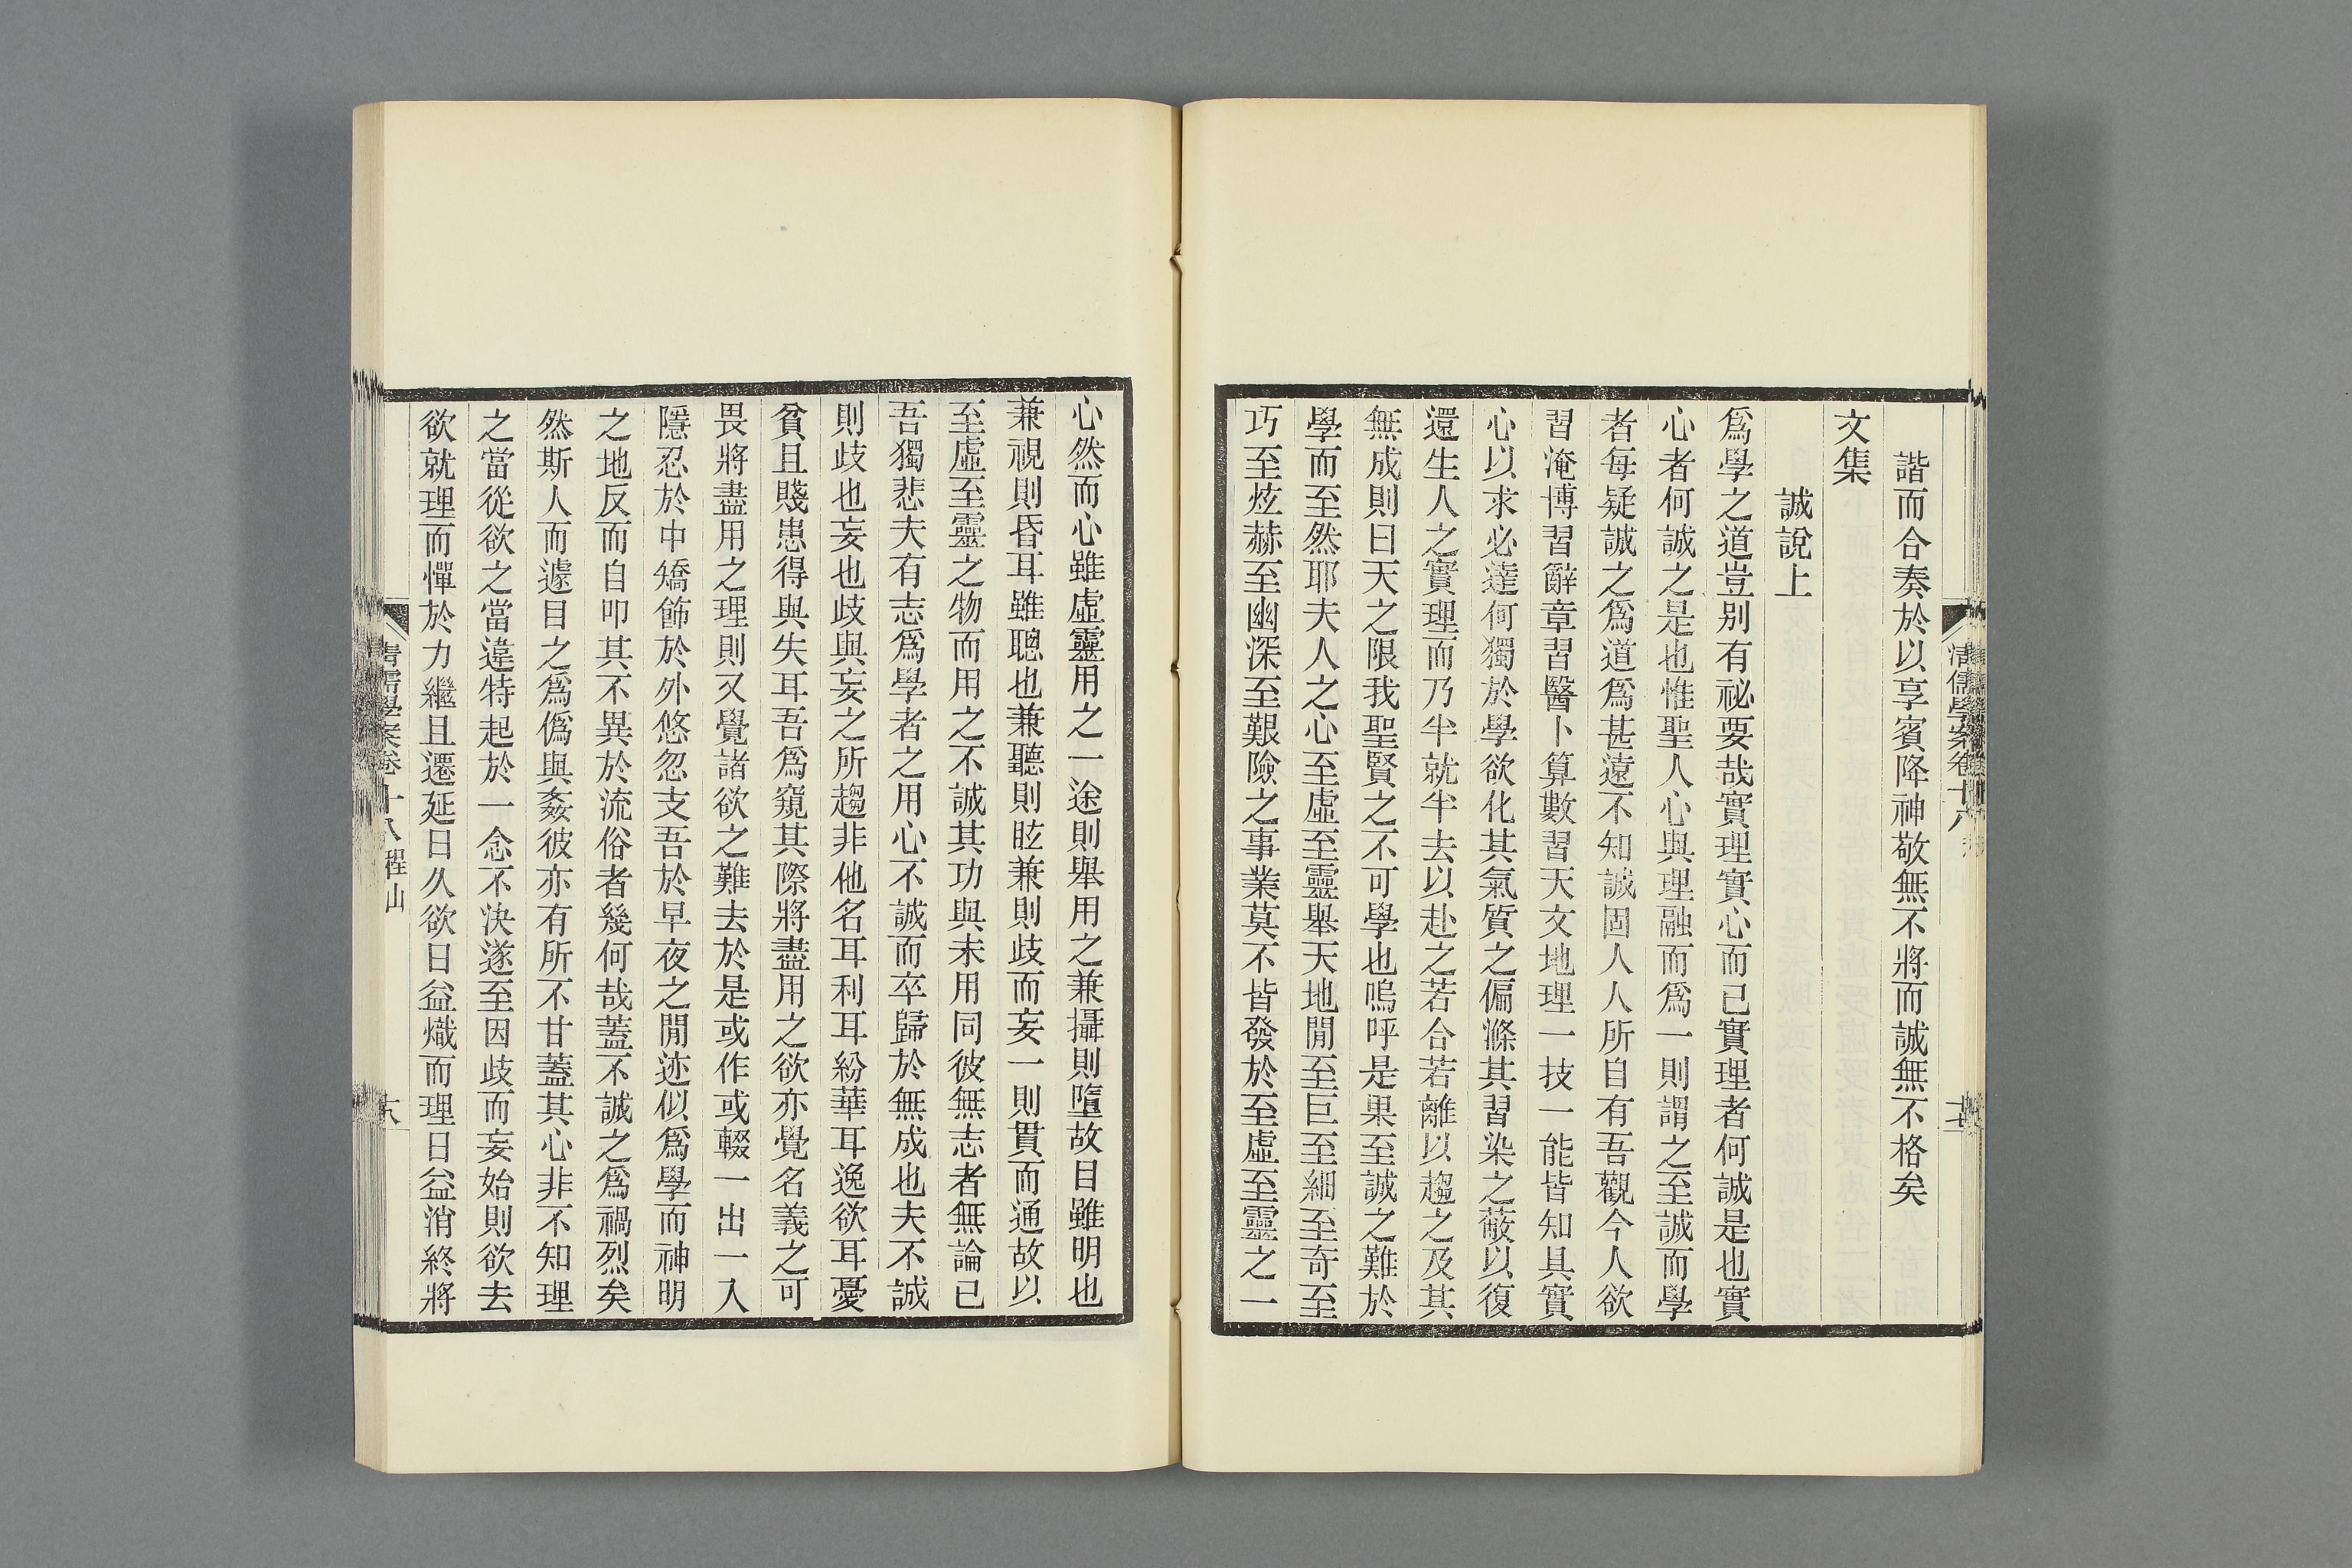 諧而合奏於以享賓降神敬無不將而誠無不格矣
文集
誠說上
爲學之道豈别有祕要哉實理實心而已實理者何誠是也實
心者何誠之是也惟聖人心與理融而爲一則謂之至誠而學
者每疑誠之爲道爲甚遠不知誠固人人所自有吾觀今人欲
習淹博習辭章習醫卜算數習天文地理一技一能皆知具實
心以求必達何獨於學欲化其氣質之偏滌其習染之蔽以復
還生人之實理而乃半就半去以赴之若合若離以趨之及其
無成則曰天之限我聖賢之不可學也嗚呼是果至誠之難於
學而至然耶夫人之心至虛至靈舉天地閒至巨至細至奇至
巧至炫赫至幽深至艱險之事業莫不皆發於至虛至靈之一
心然而心雖虛靈用之一途則舉用之兼攝則墮故目雖明也
兼視則昏耳雖聰也兼聽則眩兼則歧而妄一則貫而通故以
至虛至靈之物而用之不誠其功與未用同彼無志者無論已
吾獨悲夫有志爲學者之用心不誠而卒歸於無成也夫不誠
則歧也妄也歧與妄之所趨非他名耳利耳紛華耳逸欲耳憂
貧且賤患得與失耳吾爲窺其際將盡用之欲亦覺名義之可
畏將盡用之理則又覺諸欲之難去於是或作或輟一出一入
隱忍於中矯飾於外悠忽支吾於早夜之閒迹似爲學而神明
之地反而自叩其不異於流俗者幾何哉蓋不誠之爲禍烈矣
然斯人而遽目之爲僞與姦彼亦有所不甘蓋其心非不知理
之當從欲之當違特起於一念不決遂至因歧而妄始則欲去
欲就理而憚於力繼且遷延日久欲日益熾而理日益消終將
清儒學案卷十八
程山
十八